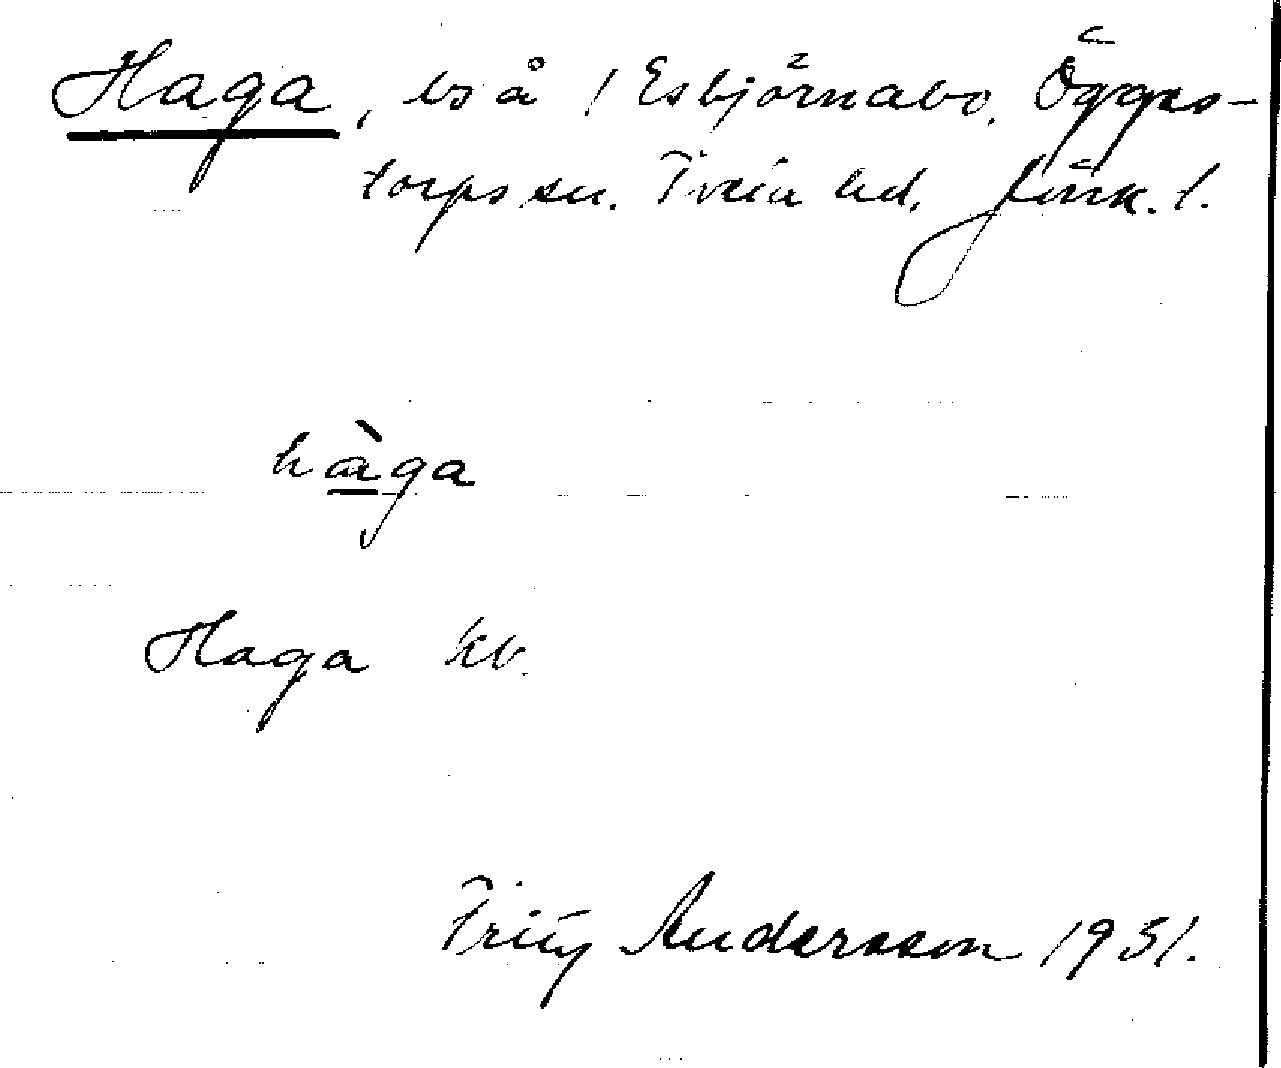 Haga, bs å / Esbjörnabo, Öggers-
torps sn. Tveta hd. Jönk. l.
hàga
Haga kb.
Fritz Andersson 1931.